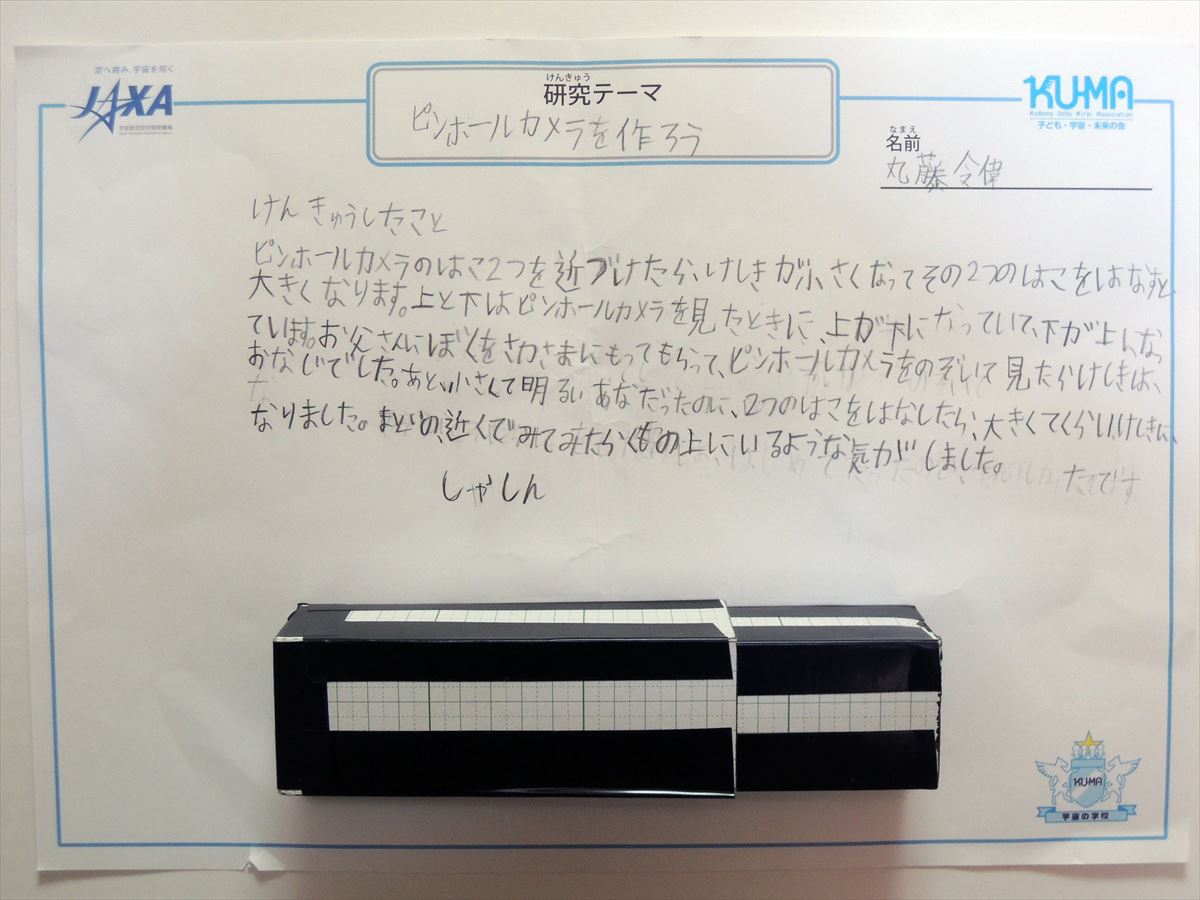 空へ挑み、宇宙を拓く
JAXA
宇宙航空研究開発機構
けんきゅう
研究テーマ
ピンホールカメラを作ろう
KU-MA
Kodomo Uchu Mirai Association
子ども・宇宙・未来の会
なまえ
名前
丸藤令偉
けんきゅうしたこと
ピンホールカメラのはこ2つを近づけたら、けしきが小さくなってその2つのはこをはなすと、
大きくなります。上と下はピンホールカメラを見たときに、上が下になっていて、下が上になっ
ています。お父さんにぼくをさかさまにもってもらって、ピンホールカメラをのぞいて見たらけしきは、
おなじでした。あと、小さくて明るいあなだったのに、2つのはこをはなしたら、大きくてくらいけしきに、
なりました。まどの近くでみてみたらくもの上にいるような気がしました。
しゃしん
KU-MA
宇宙の学校